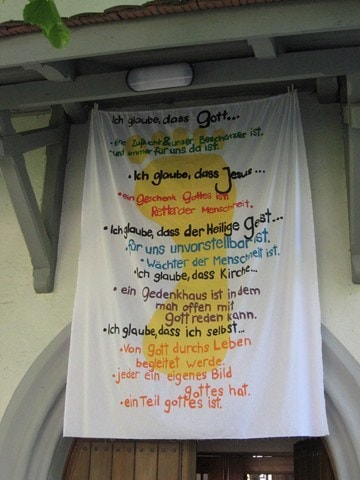 Ich glaube, dass Gott...
• eine Zuflucht & unser Beschützer ist.
• und immer für uns da ist.
• Ich glaube, dass Jesus...
• ein Geschenk Gottes ist
Retter der Menschheit.
• Ich glaube, dass der Heilige Geist...
• für uns unvorstellbar ist.
• Wächter der Menschheit ist.
• Ich glaube, dass Kirche...
• ein Gedenkhaus ist indem
man offen mit
Gott reden kann.
• Ich glaube, dass ich selbst...
• Von Gott durchs Leben
begleitet werde.
• jeder ein eigenes Bild
Gottes hat.
• ein Teil Gottes ist.